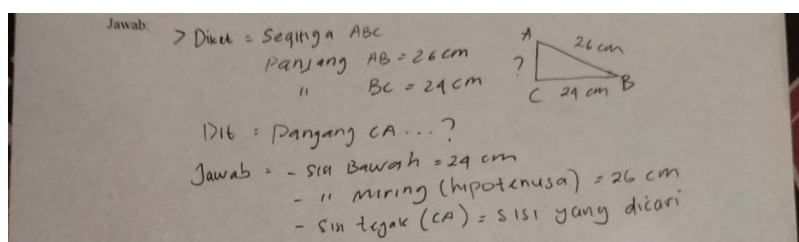 Jawab:
> Diket = Segitiga ABC
Panjang AB = 26 cm
" BC = 24 cm
A
26 cm
?
C 24 cm B
Dit = Pangang CA ...?
Jawab = - sisi Bawah = 24 cm
- " miring (hipotenusa) = 26 cm
- sisi tegak (CA) = sisi yang dicari